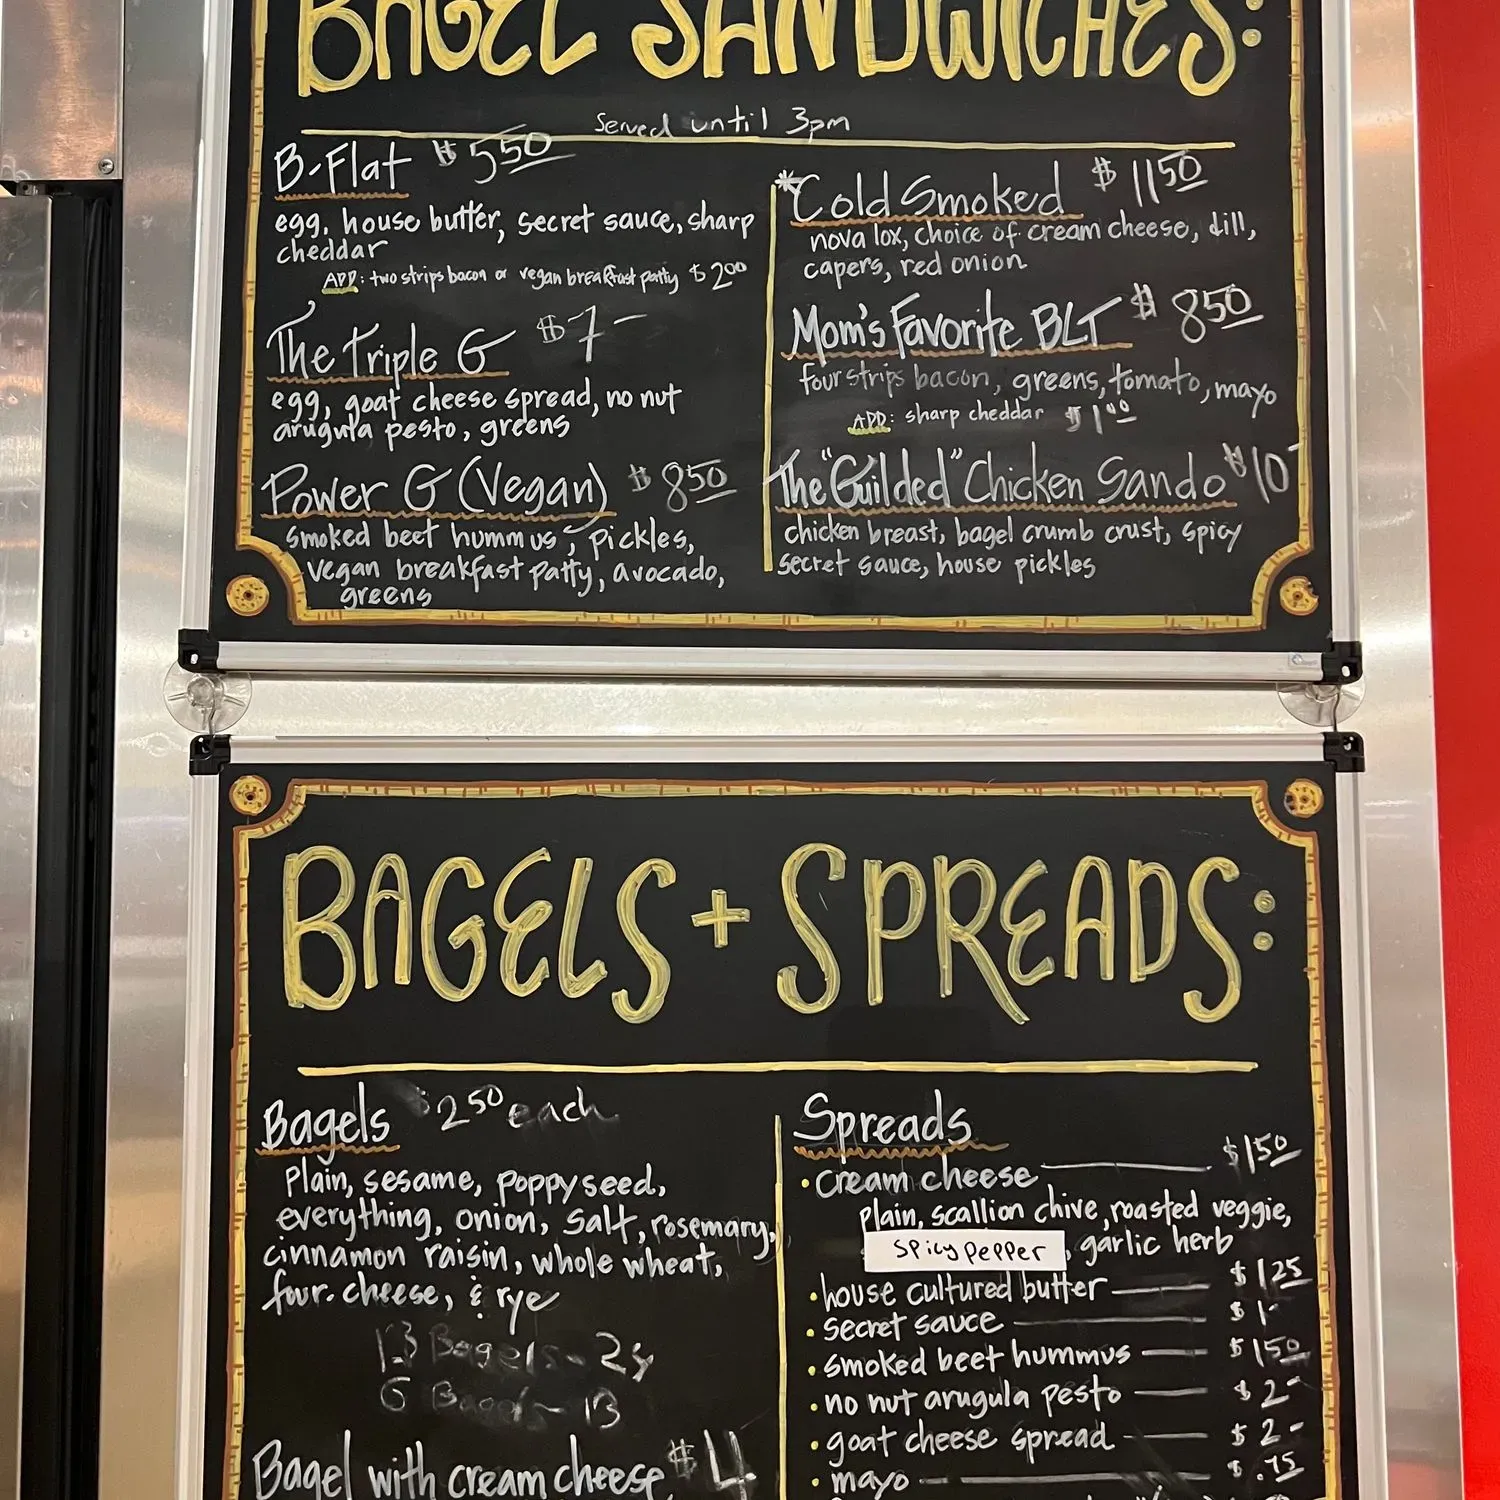 BAGEL SANDWICHES:
Served until 3pm
B-Flat $5.50
egg, house butter, secret sauce, sharp
cheddar
ADD: two strips bacon or vegan breakfast patty $2.00
The Triple G $7-
egg, goat cheese spread, no nut
arugula pesto, greens
Power G (Vegan) $8.50
smoked beet hummus, pickles,
vegan breakfast patty, avocado,
greens
*Cold Smoked $11.50
nova lox, choice of cream cheese, dill,
capers, red onion
Mom's Favorite BLT $8.50
four strips bacon, greens, tomato, mayo
ADD: sharp cheddar $1.00
The "Guilded" Chicken Sando $10-
chicken breast, bagel crumb crust, spicy
secret sauce, house pickles
BAGELS + SPREADS:
Bagels $2.50 each
Plain, sesame, poppyseed,
everything, onion, salt, rosemary,
cinnamon raisin, whole wheat,
four cheese, & rye
13 Bagels - 
6 Bagels - 13
Bagel with cream cheese $4
Spreads
• cream cheese $1.50
plain, scallion chive, roasted veggie,
spicy pepper, garlic herb
• house cultured butter $1.25
• secret sauce $1-
• smoked beet hummus $1.50
• no nut arugula pesto $2-
• goat cheese spread $2-
• mayo $.75